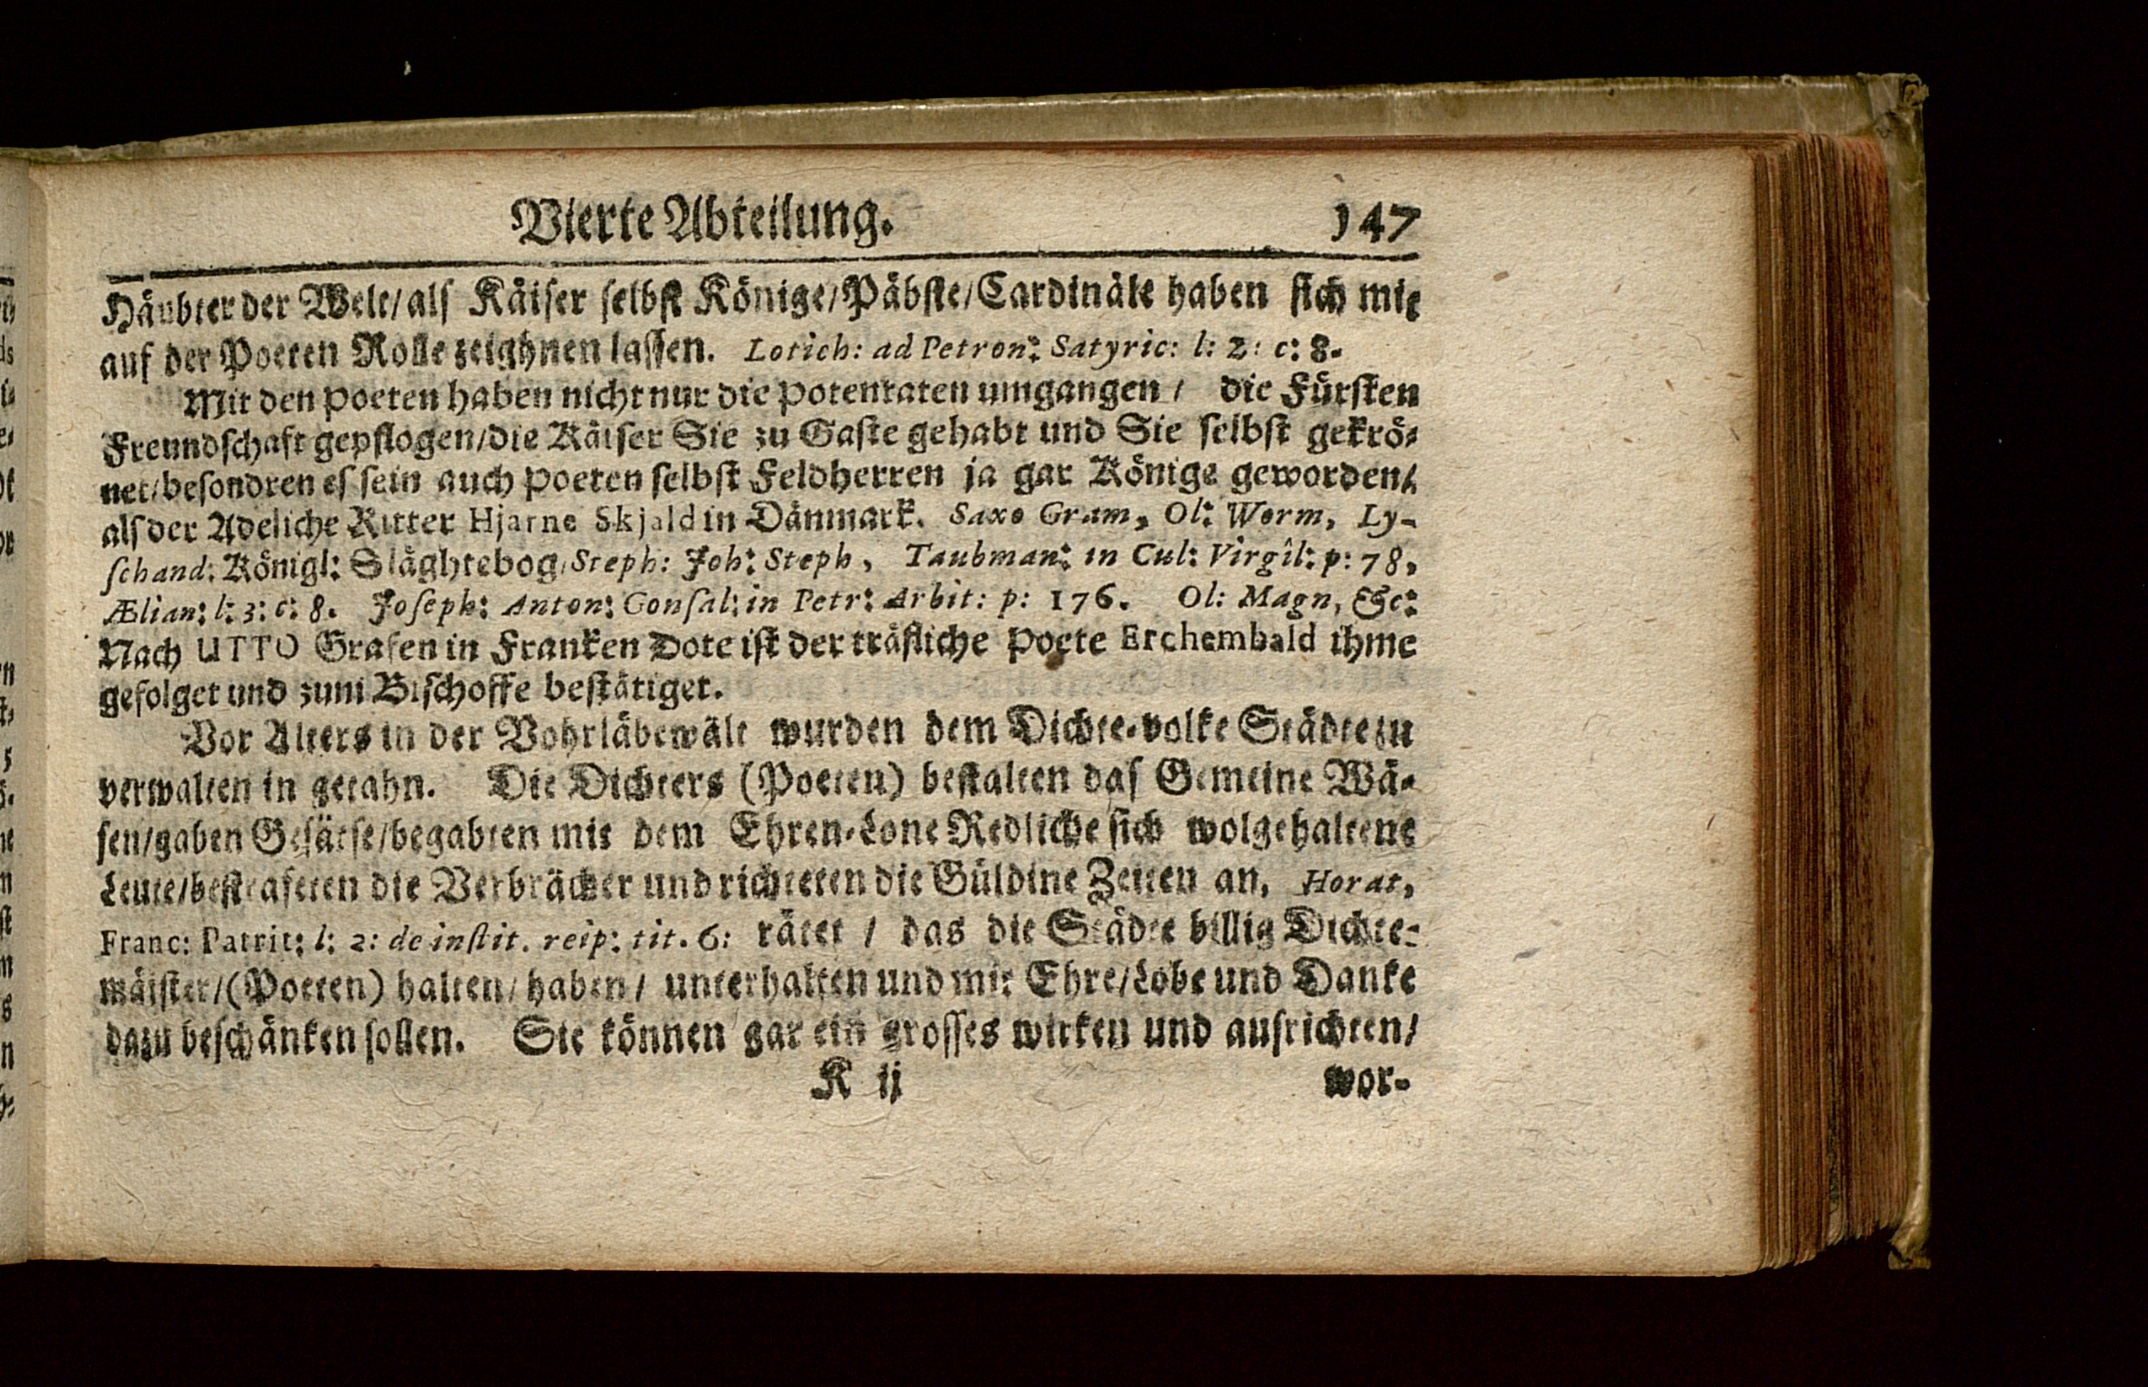 Vierte Abteilung. 147
Häubter der Welt/als Käiser selbst Könige/Päbste/Cardinäle haben sich mit
auf der Poeten Rolle zeighnen lassen. Lotich: ad Petron: Satyric: l: 2: c: 8.
Mit den Poeten haben nicht nur die Potentaten umgangen / die Fürsten
Freundschaft gepflogen/die Käiser Sie zu Gaste gehabt und Sie selbst gekrö-
net/besondren es sein auch Poeten selbst Feldherren ja gar Könige geworden/
als der Adeliche Ritter Hjarne Skjald in Dänmark. Saxo Gram, Ol: Worm, Ly-
schand: Königl: Släghtebog, Steph: Joh: Steph, Taubman: in Cul: Virgil: p: 78,
Ælian: l: 3: c: 8. Joseph: Anton: Gonsal: in Petr: Arbit: p: 176. Ol: Magn, &c:
Nach UTTO Grafen in Franken Dote ist der träfliche Poete Erchembald ihme
gefolget und zum Bischoffe bestätiget.
Vor Alters in der Vohrläbewält wurden dem Dichte-volke Städte zu
verwalten in getahn. Die Dichters (Poeten) bestalten das Gemeine Wä-
sen/gaben Gesätse/begabten mit dem Ehren-Lone Redliche sich wolgehaltene
Leute/bestrafeten die Verbrächer und richteten die Güldine Zeiten an. Horat,
Franc: Patrit: l: 2: de instit. reip: tit. 6: rätet / das die Städte billig Dichte-
mäister/(Poeten) halten/haben/ unterhalten und mit Ehre/Lobe und Danke
dazu beschänken sollen. Sie können gar ein grosses wirken und ausrichten/
K ij wor-